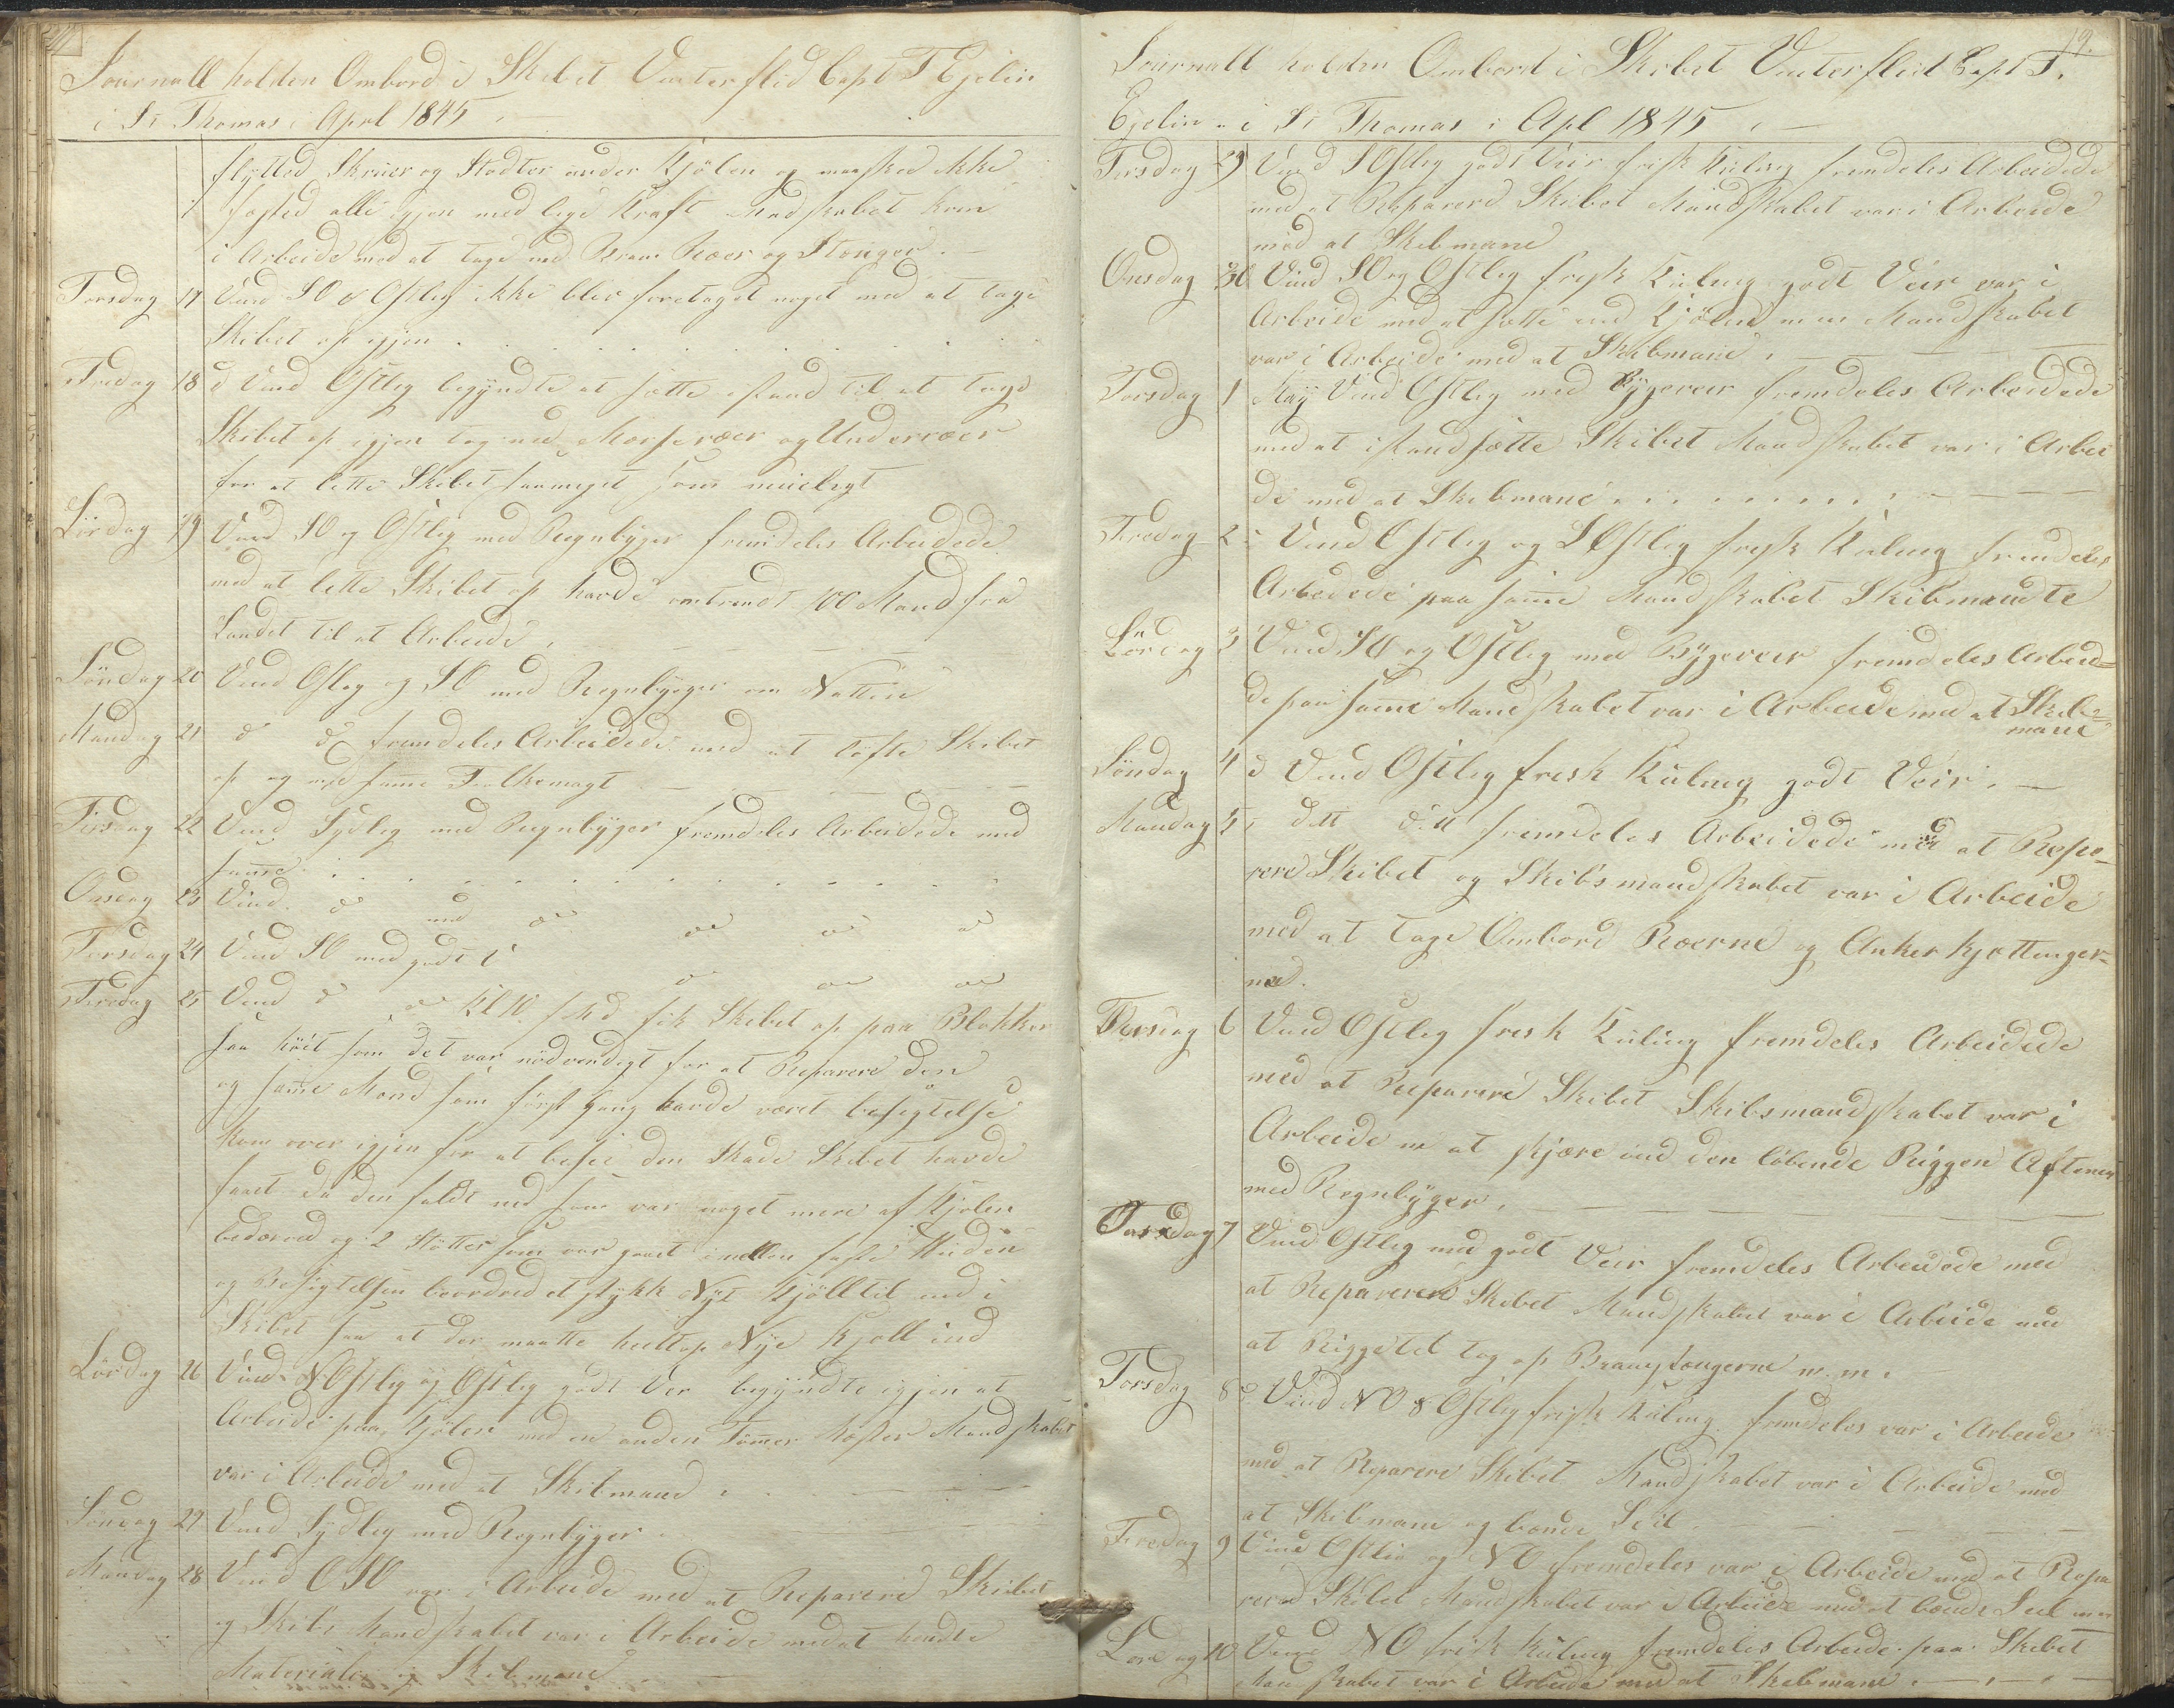 Journall holden Ombord i Skibet Vinterflid Capt T Ejelin
i St Thomas i Aprl 1845
flytted Skruer og Stødter under Kjölen og maaskee ikke
fæsted alle igjen med lige Kraft Mandskabet kom
i Arbeide med at tage ned Bram Ræer og Stenger.
Torsdag 17 Vind SO & Ostlig ikke blev foretaget noget med at tage
Skibet op igjen
Fredag 18 d Vind Ostlig begyndte at sætte istand til at tage
Skibet op igjen tog ned Mærseræer og Underræer
for at lette Skibet saameget som muieligt
Lördag 19 Vind SO og Ostlig med Regnbyger fremdeles Arbeidede
med at lette Skibet op havde omtrendt 100 Mand fra
Landet til at Arbeide.
Söndag 20 Vind Ostlig og SO med Regnbyger om Natten
Mandag 21 do do fremdeles Arbeidede med at löfte Skibet
op og med samme Folkemagt
Tirsdag 22 Vind Sydlig med Regnbyger fremdeles Arbeidede med
samme
Onsdag 23 Vind do med do do do do
Torsdag 24 Vind SO med godt V do do do
Fredag 25 Vind do do Kl 10 fik Skibet op paa Blokker
saa höit som det var nödvendigt for at Reparere den
og samme Mænd som först Gang havde været besigtelse
kom over igjen for at besee den Skade Skibet havde
faaet da den faldt ned som var noget mere af Kjölen
bedærved og 2 Stötter som var gaaet imellem Huden
og Besigtelsen beordred et stykk Nyt Kjöll til ind i
Skibet saa at der maatte heeltop Nye Kjöll ind
Lördag 26 Vind NOstlig og Ostlig godt Ver begyndte igjen at
Arbeide paa Kjölen med en anden Tömmer Mester Mandskabet
var i Arbeide med at Skibmand
Söndag 27 Vind Sydlig med Regnbyger
Mandag 28 Vind OSO var i Arbeide med at Reparere Skibet
og Skibs Mandskabet var i Arbeide med at hendte
Materialer og Skibmane
19.
Journall holden Ombord i Skibet Vinterflid Capt T.
Ejelin i St Thomas i Apl 1845
Tirsdag 29 Vind SOstlig godt Veir frisk Kuling fremdeles Arbeidede
med at Reparere Skibet Mandskabet var i Arbeide
med at Skibmane
Onsdag 30 Vind SO og Ostlig frisk Kuling godt Veir var i
Arbeide med at sætte ind Kjölen men Mandskabet
var i Arbeide med at Skibmane
Torsdag 1 Maÿ Vind Ostlig med Bygeveir fremdeles Arbeidede
med at istandsætte Skibet Mandskabet var i Arbei
de med at Skibmane
Fredag 2 Vind Ostlig og SOstlig frisk Kuling fremdeles
Arbeidede paa samme Mandskabet Skibmandte
Lördag 3 Vind SO og Ostlig med Bygeveir fremdeles Arbeid=
de paa samme Mandskabet var i Arbeide med at Skib=
mane
Söndag 4 d Vind Ostlig frisk Kuling godt Veir
Mandag 5 ditt ditt fremdeles Arbeidede med at Repa=
rere Skibet og Skibs mandskabet var i Arbeide
med at tage Ombord Ræerne og Anker kjættinger=
ne.
Tirsdag 6 Vind Ostlig frisk Kuling fremdeles Arbeidede
med at Reparere Skibet Skibsmandskabet var i
Arbeide m at skjære ind den löbende Riggen Aftenen
med Regnbyger.
Onsdag 7 Vind Ostlig med godt Veir fremdeles Arbeidede med
at Reparere Skibet Mandskabet var i Arbeide med
at Rigge til tog op Bramstængerne m. m.
Torsdag 8 d Vind NO & Ostlig frisk Kuling fremdeles var i Arbeide
med at Reparere Skibet Mandskabet var i Arbeide med
at Skibmane og bænde Seil
Fredag 9 Vind Ostlig og NO fremdeles var i Arbeide med at Repa
rered Skibet Mandskabet var i Arbeide med at bænde Seil
Lördag 10 Vind NO frisk Kuling fremdeles Arbeide paa Skibet
Mandskabet var i Arbeide med at Skibmane